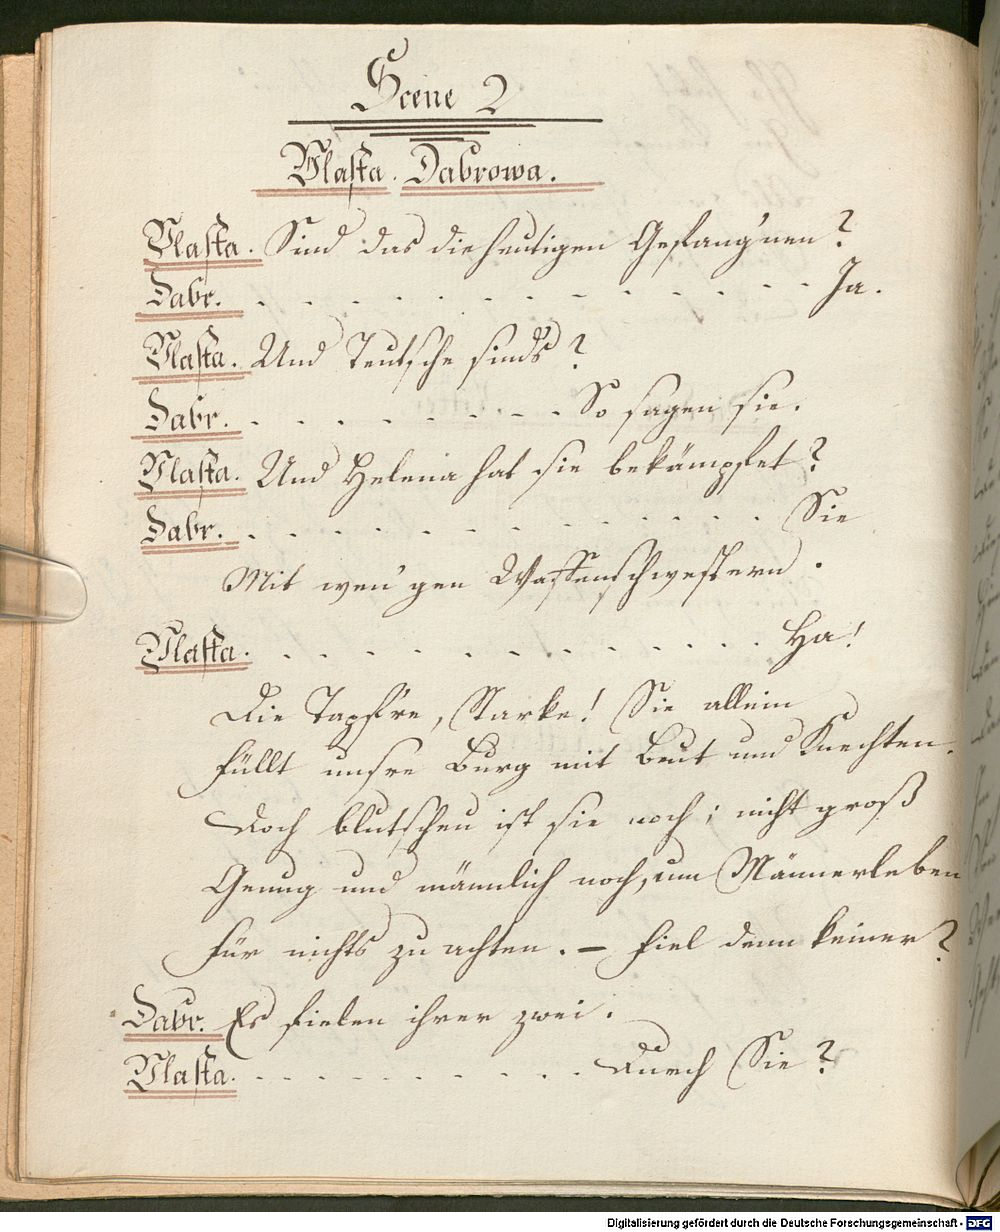 Scene 2
Vlasta. Dabrowa.
Vlasta. Sind das die heutigen Gefang'nen?
Dabr. . . . . . . . . . . . . . Ja.
Vlasta. Und Teutsche sind's?
Dabr. . . . . . . . . So sagen sie.
Vlasta. Und Helena hat sie bekämpfet?
Dabr. . . . . . . . . . . . . Sie
Mit wen'gen Waffenschwestern.
Vlasta. . . . . . . . . . . . . Ha!
Die Tapf're, Starke! Sie allein
füllt unsre Burg mit Beut und Knechten.
Doch blutscheu ist sie noch; nicht groß
Genug und männlich noch, um Männerleben
für nichts zu achten. – fiel denn keiner?
Dabr. Es fielen ihrer zwei.
Vlasta. . . . . . . . . . . Durch Sie?
Digitalisierung gefördert durch die Deutsche Forschungsgemeinschaft - DFG